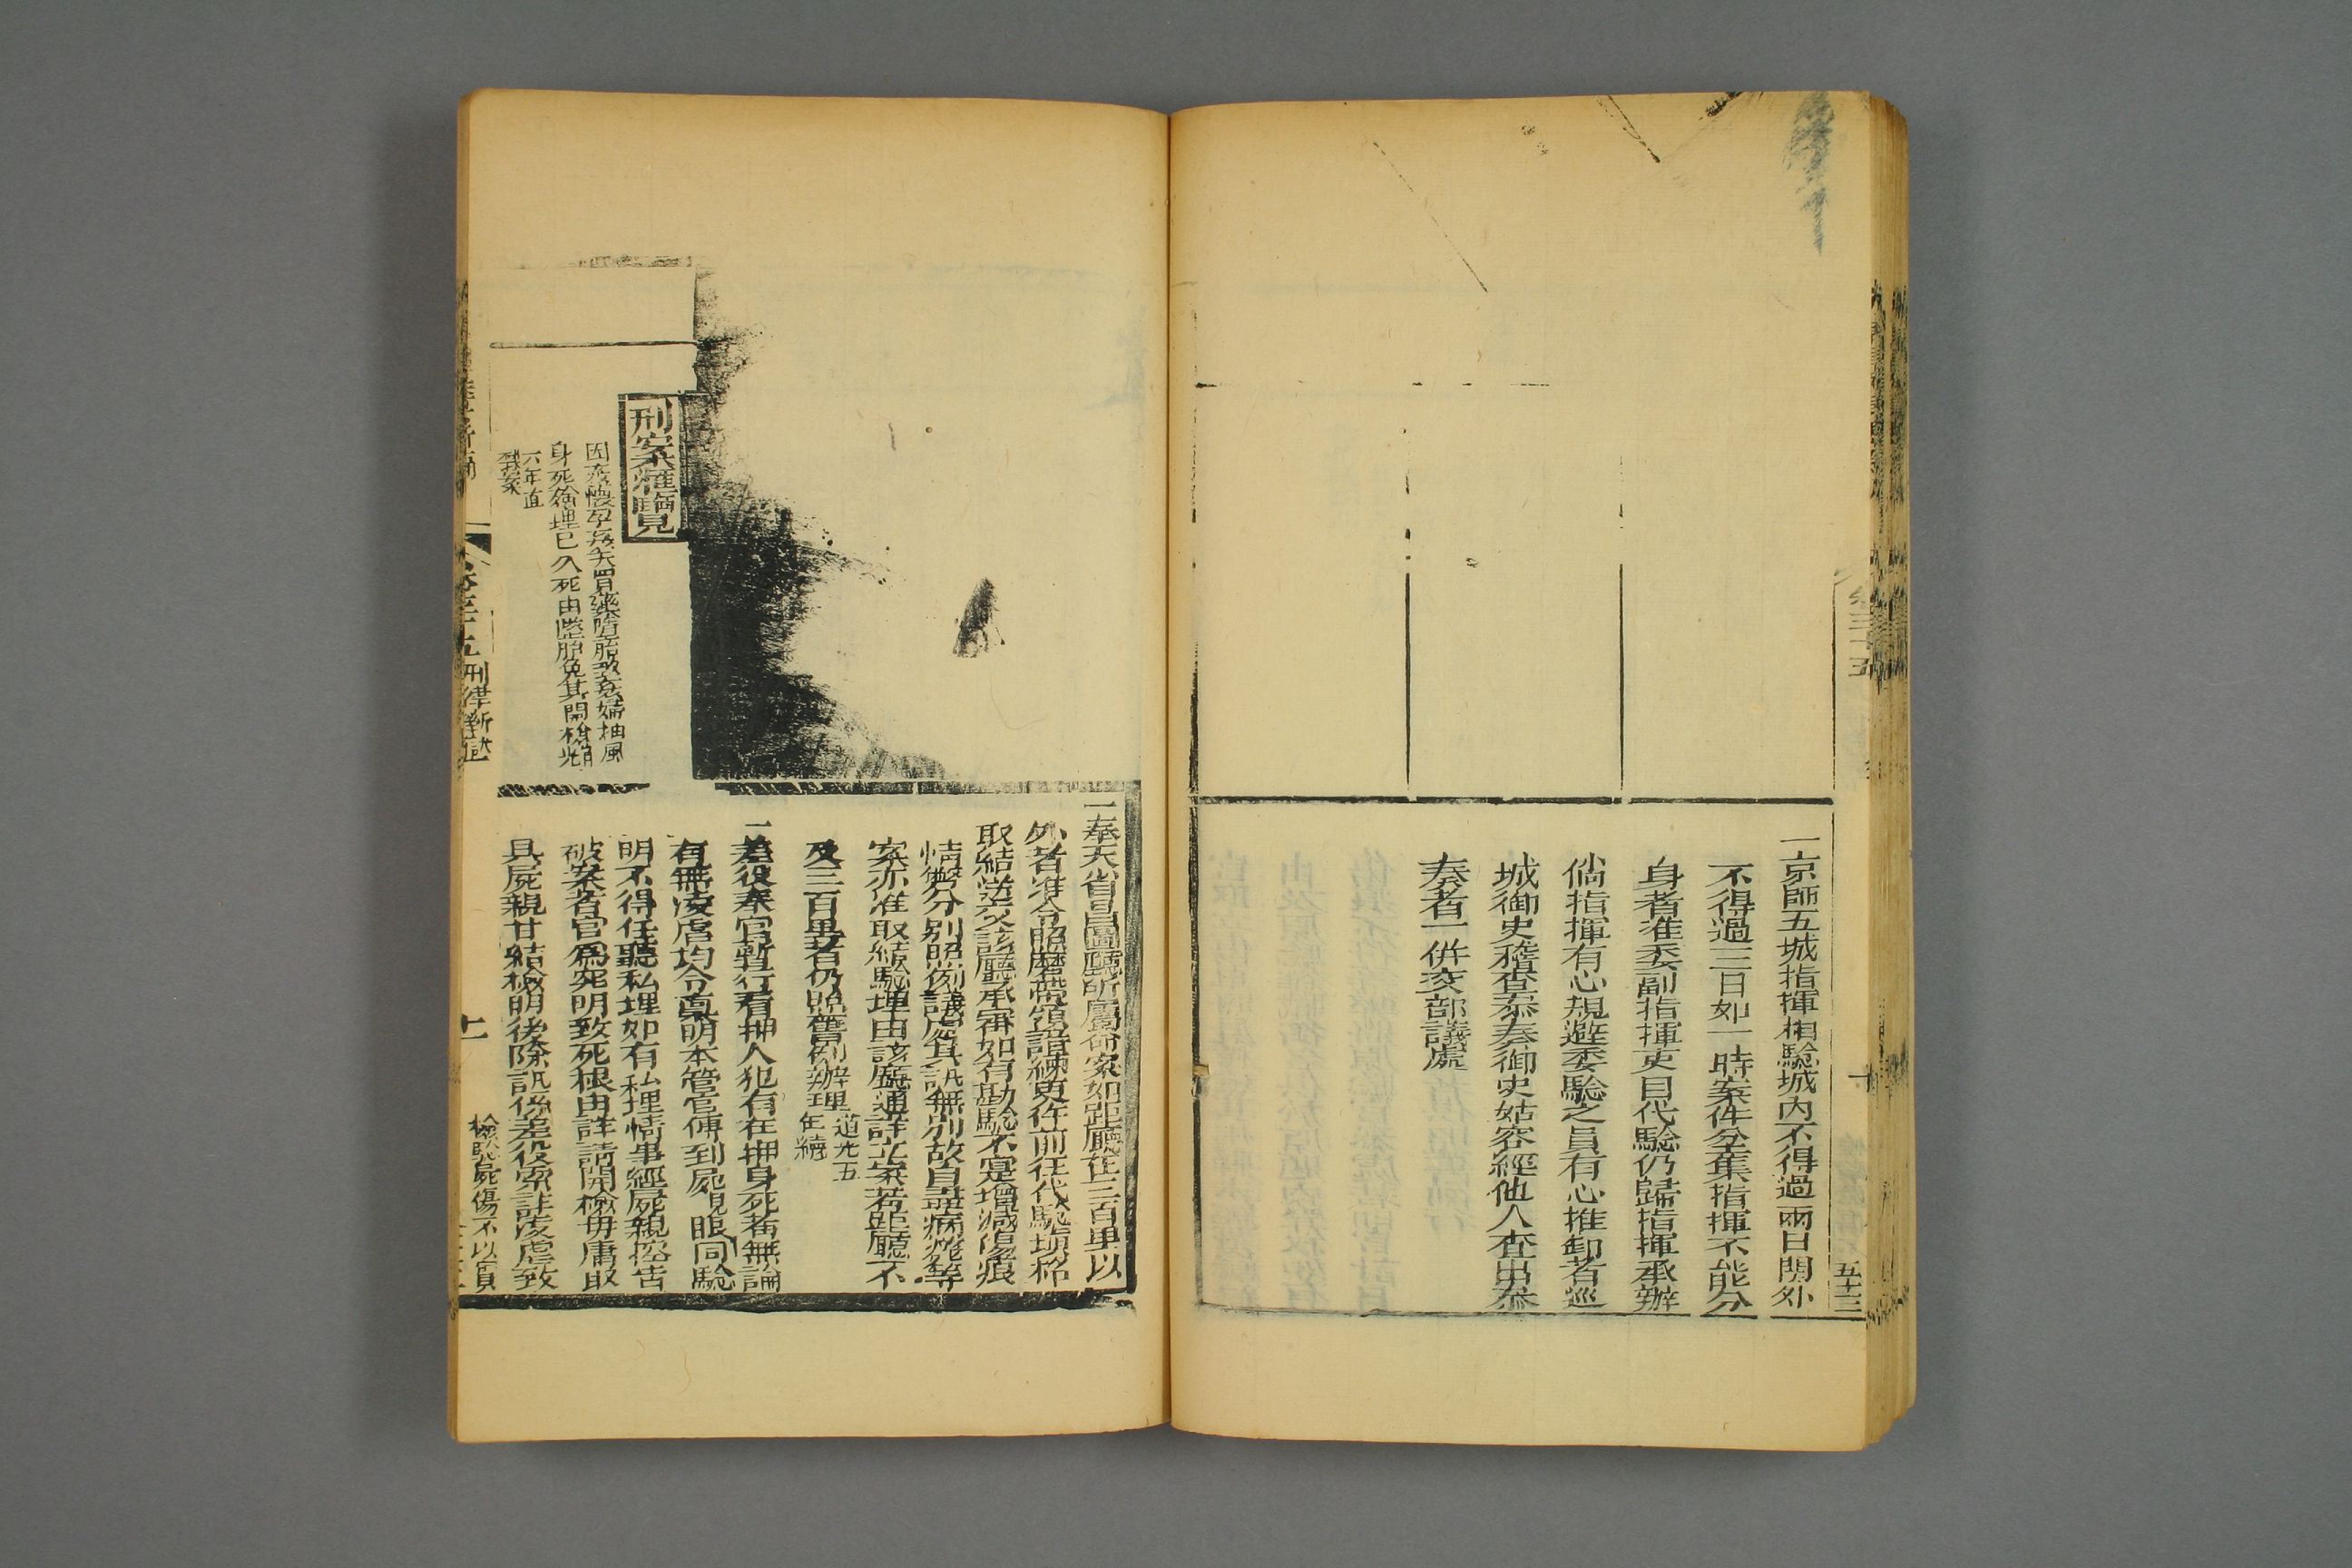 一京師五城指揮相驗城內不得過兩日關外
不得過三日如一時案件坌集指揮不能分
身者准委副指揮吏目代驗仍歸指揮承辦
倘指揮有心規避委驗之員有心推卸者巡
城御史稽查叅奏御史姑容經他人查出叅
奏者一併交部議處
五十三
一奉天省昌圖廳所屬命案如距廳在三百里以
外者准令照磨帶領諳練吏仵前往代驗塡格
取結送交該廳承審如有勘驗不寔增減傷痕
情獘分别照例議處其訊無别故自盡病斃等
案亦准取結驗埋由該廳通詳立案若距廳不
及三百里者仍照舊例辦理道光五
年續
一差役奉官暫行看押人犯有在押身死者無論
有無凌虐均令直明本管官傳到屍親眼同驗
明不得任聽私埋如有私埋情事經屍親控告
破案者官爲究明致死根由詳請開檢毋庸取
具屍親甘結檢明後除訊係差役索詐凌虐致
刑案滙覽
因姦懷孕姦夫買藥墮胎致姦婦抽風
身死殮埋已久死由墮胎免其開檢
六年直
隸案
卷三十五 刑律斷獄
檢驗屍傷不以實